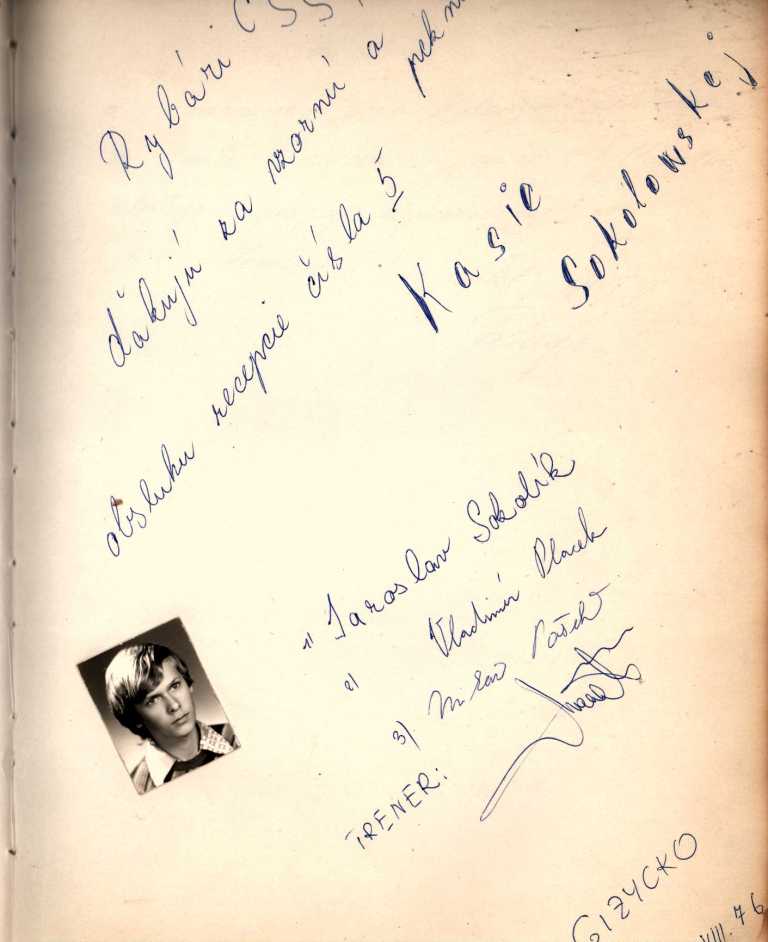 Rybári ČSS
ďakujú za vzornú a peknú
obsluhu recepcie čísla 5
Kasie Sokolowskej
1) Jaroslav Sokolík
2) Vladimír Placek
3)
TRENER:
GIZYCKO
VIII. 76